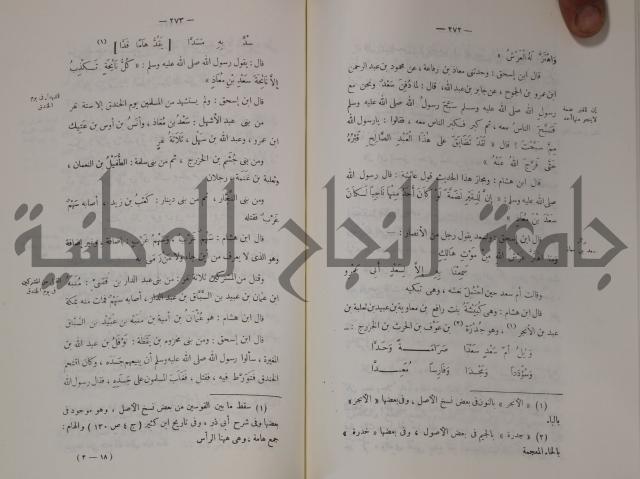 — ٢٧٢ —
وَاهْتَزَّ لَهُ الْعَرْشُ »
قال ابن إسحق: وحدثنى معاذ بن رفاعة، عن محمود بن عبد الرحمن
ابن عمرو بن الجموح، عن جابر بن عبد الله، قال: لما دُفِنَ سَعْدٌ ونحن مع
رسول الله صلى الله عليه وسلم سَبَّحَ رسول الله صلى الله عليه وسلم
فَسَبَّحَ الناسُ معه، ثم كبر فكبر الناس معه، فقالوا: يا رسول الله
مِمَّ سبحت؟ قال « لَقَدْ تَضَايَقَ عَلَى هٰذَا الْعَبْدِ الصَّالِحِ قَبْرُهُ
حَتَّى فَرَّجَ اللهُ عَنْهُ »
قال ابن هشام: ومجاز هذا الحديث قول عائشة: قال رسول الله
صلى الله عليه وسلم: « إِنَّ لِلْقَبْرِ لَضَمَّةً لَوْ كَانَ أَحَدٌ مِنْهَا نَاجِياً لَكَانَ
سَعْدَ بْنَ مُعَاذٍ »
قال ابن إسحق: ولسعد يقول رجل من الأنصار:
مِنْ مَوْتِ هَالِكٍ
سَمِعْنَا بِهِ إِلاَّ لِسَعْدٍ أَبِى عَمْرِو
وقالت أم سعد حين احْتُمِلَ نَعْشُه، وهى تبكيه
قال ابن هشام: وهى كُبَيْشَةُ بنت رافع بن معاوية بن عبيد بن ثعلبة بن
عبد بن الأبحر (١)، وهو جُدْرَةُ (٢) بن عَوْف بن الحرث بن الخزرج: —
وَيْلُ أُمِّ سَعْدٍ سَعْدَا صَرَامَةً وَحَدَّا
وَسُؤْدَداً وَمَجْدَا وَفَارِساً مُعَدَّا
(١) « الأبحر » بالنون فى بعض نسخ الأصل، وفى بعضها « الأبحر »
بالباء.
(٢) « جدرة » بالجيم فى بعض الأصول، وفى بعضها « خدرة »
بالخاء المعجمة
— ٢٧٣ —
سُدَّ بِهِ مَسَدَّا [ يَقُدُّ هَامًا قَدَّا ] (١)
قال: يقول رسول الله صلى الله عليه وسلم: « كُلُّ نَائِحَةٍ تَكْذِبُ
إِلاَّ نَائِحَةَ سَعْدِ بْنِ مُعَاذٍ »
قال ابن إسحق: ولم يستشهد من المسلمين يوم الخندق إلا ستة نفر
من بنى عبد الأشهل: سَعْدُ بن مُعَاذ، وأنَسُ بن أوس بن عَتِيك
ابن عمرو، وعبد الله بن سَهْل، ثَلَاثَةُ نَفَرٍ
ومن بنى جُشَمِ بن الخزرج، ثم من بنى سلمة: الطُّفَيْلُ بن النعمان،
وثعلبة بن غَنَمة، رجلان
ومن بنى النَّجَّار، ثم من بنى دينار: كَعْبُ بن زيد، أصابه سَهْمٌ
غَرْبٌ فقتله
قال ابن هشام: سَهْمُ غَرْبٍ، وسهمٌ غَرْبٌ، بإضافة، وبغير إضافة
وهو الذى لا يعرف من أين جاء ولا من رَمَى به
وقتل من المشركين ثلاثة نفر: من بنى عبد الدار بن قصى: مُنَبِّهُ
ابن عثمان بن عبيد بن السَّبَّاق بن عبد الدار، أصابه سَهْمٌ فمات منه بمكة
قال ابن هشام: هو عُثْمَانُ بن أمية بن مُنَبِّه بن عُبَيْد بن السَّبَّاق
قال ابن إسحق: ومن بنى مخزوم بن يَقَظَة: نَوْفَلُ بن عبد الله بن
المغيرة، سألوا رسول الله صلى الله عليه وسلم أن يبيعهم جَسَدَه، وكان اقتحم
الخندق فتَوَرَّط فيه، فقتل، فغَلَبَ المسلمون على جَسَدِهِ، فقال رسول الله
(١) سقط ما بين القوسين من بعض نسخ الأصل، وهو موجود فى
بعضها وفى شرح أبى ذر، وفى تاريخ ابن كثير (ج ٤ ص ١٣٠) والهام:
جمع هامة، وهى ههنا الرأس
(١٨ — ٣)
جامعة النجاح الوطنية